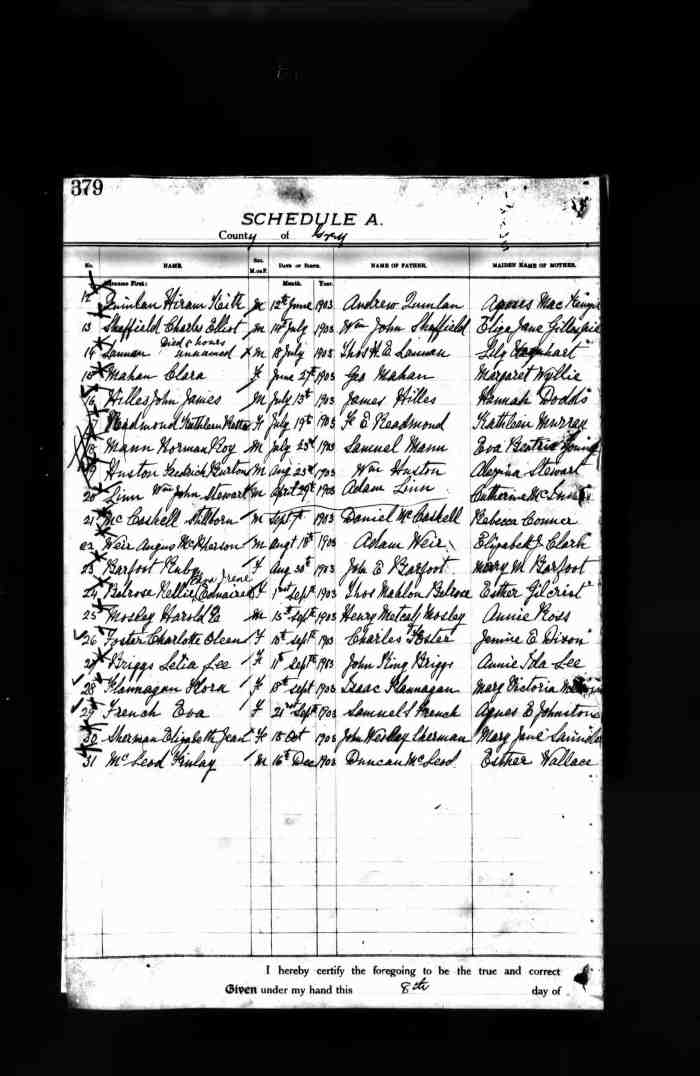 379
SCHEDULE A.
County of Grey
No. NAME. Sex. M. or F. DATE OF BIRTH. NAME OF FATHER. MAIDEN NAME OF MOTHER.
Surname First: Month. Year.
12 Quinlan Hiram Keith M 12th June 1903 Andrew Quinlan Agnes Mac
13 Sheffield Charles Elliot M 14th July 1903 Wm John Sheffield Eliza Jane Gillespie
Died 5 hours
14 Lannan unnamed M 18 July 1903 Thos H. E. Lannan Lily
15 Mahan Clara F June 27th 1903 Geo Mahan Margaret Wyllie
16 Hilles John James M July 13th 1903 James Hilles Hannah Dodds
17 Readmond Kathleen F July 19th 1903 F E Readmond Kathleen Murray
18 Mann Norman Roy M July 23d 1903 Samuel Mann Eva Beatrice Young
19 Huston Fredrick Burton M Aug 23d 1903 Wm Huston Stewart
20 Linn Wm John Stewart M April 29th 1903 Adam Linn Catherine
21 Mc Caskell Stillborn M Sept 7th 1903 Daniel Mc Caskell Rebecca Conner
22 Weir Angus McPherson M Augt 18th 1903 Adam Weir Elizabeth J. Clark
23 Barfoot Ruby F Aug 30th 1903 John E Barfoot Mary M Barfoot
Irene
24 Belrose Nellie F Sept 1903 Thos Mahlon Belrose Esther Gilcrist
25 Mosley Harold M 15th Sept 1903 Henry Metcalf Mosley Annie Ross
26 Foster Charlotte F 10th Sept 1903 Charles Foster Jennie E Dixon
27 Briggs Lelia Lee F 11th Sept 1903 John King Briggs Annie Ida Lee
28 Flannagan Flora F 18th Sept 1903 Isaac Flannagan Mary Victoria
29 French Eva F 21st Sept 1903 Samuel S French Agnes E Johnstone
30 Sherman Elizabeth Jean F 15 Oct 1903 John Wesley Sherman Mary Jane
31 Mc Leod Finlay M 16th Dec 1903 Duncan Mc Leod Esther Wallace
I hereby certify the foregoing to be the true and correct
Given under my hand this 8th day of